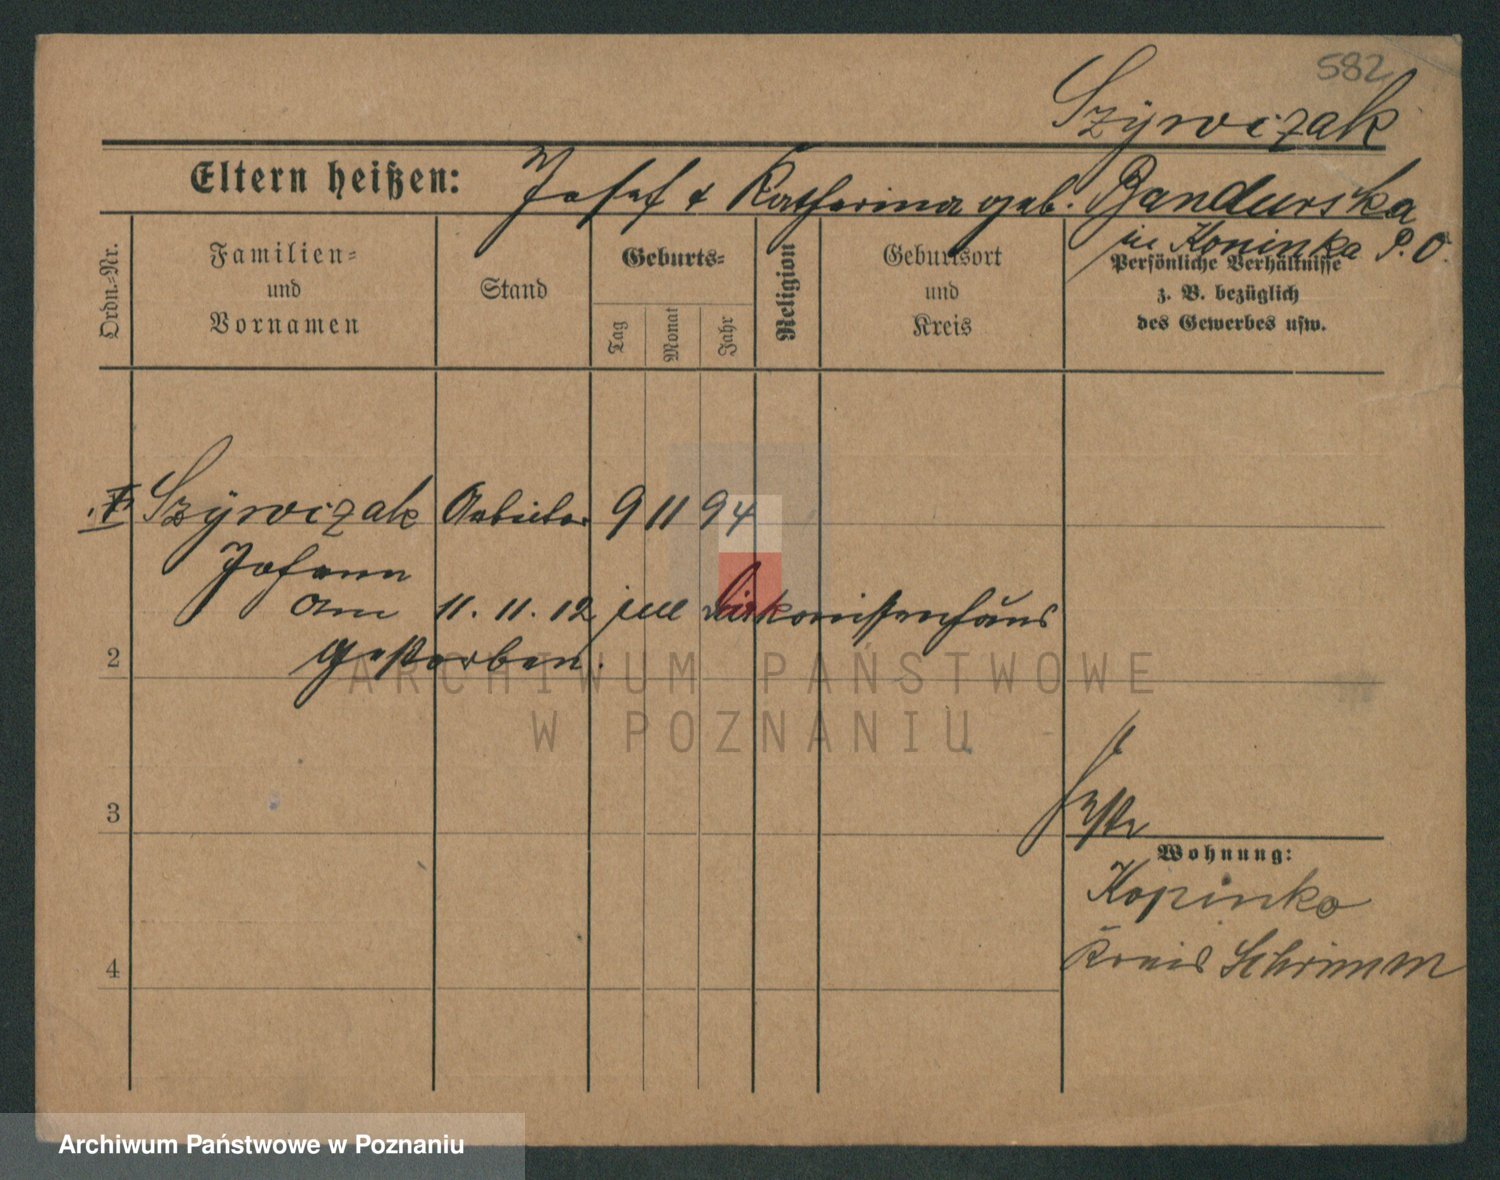 582
Szÿwczak
Eltern heißen: Josef & Katharina geb. Bandurska
in Koninka P. O.
Ordn.-Nr.
Familien-
und
Vornamen
Stand
Geburts-
Tag
Monat
Jahr
Religion
Geburtsort
und
Kreis
Persönliche Verhältnisse
z. B. bezüglich
des Gewerbes usw.
Szÿwczak Arbeiter 9 11 94
Johann
Am 11. 11. 12 im Diakonissenhaus
gestorben.
2
ARCHIWUM PAŃSTWOWE
W POZNANIU
3
Wohnung:
Kopinko
Kreis Schrimm
4
Archiwum Państwowe w Poznaniu